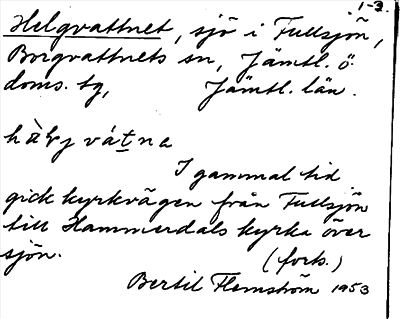 1-3.
Helgvattnet, sjö i Fullsjön,
Borgvattnets sn, Jämtl. ö.
doms. tg, Jämtl. län.
vátna
I gammal tid
gick kyrkvägen från Fullsjön
till Hammerdals kyrka över
sjön. (forts.)
Bertil Flemström 1953